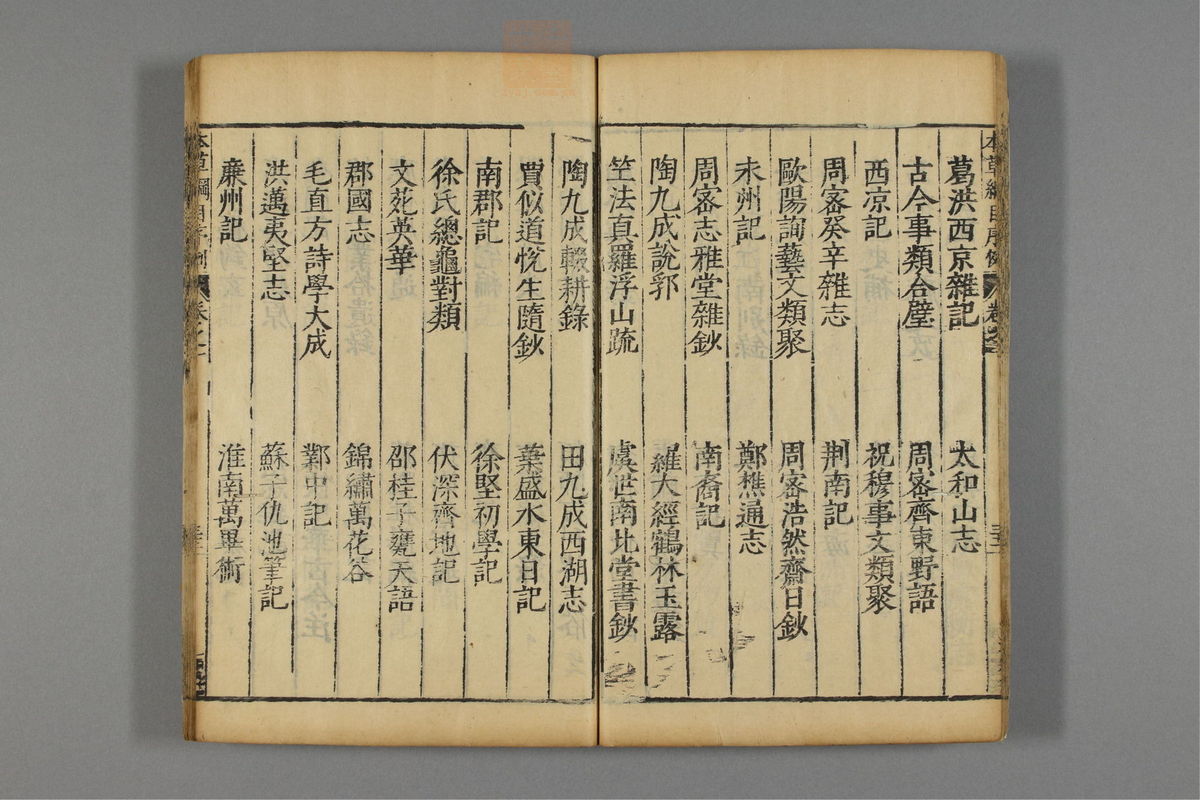 葛洪西京雜記 太和山志
古今事類合璧 周密齊東野語
西凉記 祝穆事文類聚
周密癸辛雜志 荆南記
歐陽詢藝文類聚 周密浩然齋日鈔
永州記 鄭樵通志
周密志雅堂雜鈔 南裔記
陶九成說郛 羅大經鶴林玉露
竺法真羅浮山疏 虞世南北堂書鈔
陶九成輟耕錄 田九成西湖志
賈似道悅生隨鈔 葉盛水東日記
南郡記 徐堅初學記
徐氏總龜對類 伏深齊地記
文苑英華 邵桂子甕天語
郡國志 錦繡萬花谷
毛直方詩學大成 鄴中記
洪邁夷堅志 蘇子仇池筆記
廉州記 淮南萬畢術
本草綱目序例